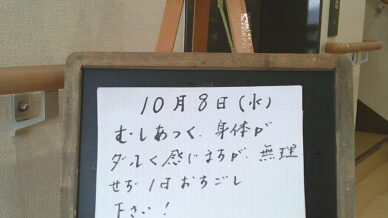 10月8日(水)
むしあつく、身体が
ダルく感じますが、無理
せず1日おすごし
下さい!